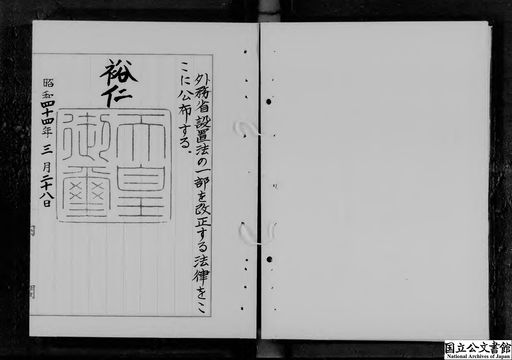 外務省設置法の一部を改正する法律をこ
こに公布する。
裕仁
天皇
御璽
昭和四十四年三月二十八日
国立公文書館
National Archives of Japan